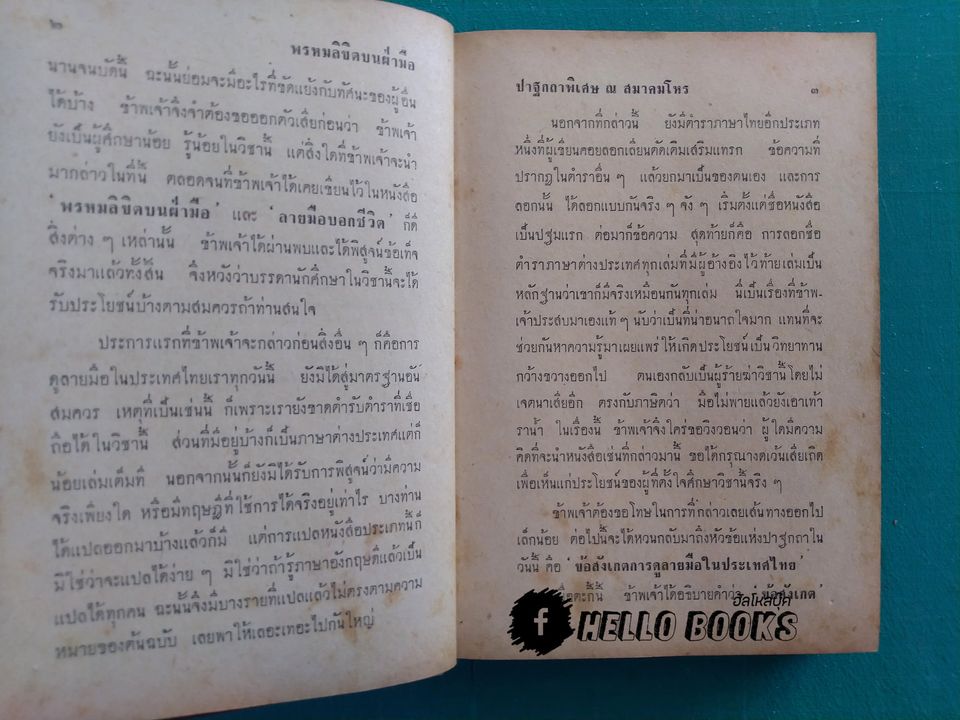 ๒
พรหมลิขิตบนฝ่ามือ
นานจนบัดนี้ ฉะนั้นย่อมจะมีอะไรที่ขัดแย้งกับทัศนะของผู้อื่น
ได้บ้าง ข้าพเจ้าจึงจำต้องขอออกตัวเสียก่อนว่า ข้าพเจ้า
ยังเป็นผู้ศึกษาน้อย รู้น้อยในวิชานี้ แต่สิ่งใดที่ข้าพเจ้าจะนำ
มากล่าวในที่นี้ ตลอดจนที่ข้าพเจ้าได้เคยเขียนไว้ในหนังสือ
'พรหมลิขิตบนฝ่ามือ' และ 'ลายมือบอกชีวิต' ก็ดี
สิ่งต่าง ๆ เหล่านั้น ข้าพเจ้าได้ผ่านพบและได้พิสูจน์ข้อเท็จ
จริงมาแล้วทั้งสิ้น จึงหวังว่าบรรดานักศึกษาในวิชานี้จะได้
รับประโยชน์บ้างตามสมควรถ้าท่านสนใจ
ประการแรกที่ข้าพเจ้าจะกล่าวก่อนสิ่งอื่น ๆ ก็คือการ
ดูลายมือในประเทศไทยเราทุกวันนี้ ยังมิได้สู่มาตรฐานอัน
สมควร เหตุที่เป็นเช่นนี้ ก็เพราะเรายังขาดตำรับตำราที่เชื่อ
ถือได้ในวิชานี้ ส่วนที่มีอยู่บ้างก็เป็นภาษาต่างประเทศแต่ก็
น้อยเล่มเต็มที นอกจากนั้นก็ยังมิได้รับการพิสูจน์ว่ามีความ
จริงเพียงใด หรือมีทฤษฎีที่ใช้การได้จริงอยู่เท่าไร บางท่าน
ได้แปลออกมาบ้างแล้วก็มี แต่การแปลหนังสือประเภทนี้ก็
มิใช่ว่าจะแปลได้ง่าย ๆ มิใช่ว่าถ้ารู้ภาษาอังกฤษดีแล้วเป็น
แปลได้ทุกคน ฉะนั้นจึงมีบางรายที่แปลแล้วไม่ตรงตามความ
หมายของต้นฉบับ เลยพาให้เลอะเทอะไปกันใหญ่
ปาฐกถาพิเศษ ณ สมาคมโหร
๓
นอกจากที่กล่าวนี้ ยังมีตำราภาษาไทยอีกประเภท
หนึ่งที่ผู้เขียนคอยลอกเลียนดัดเติมเสริมแทรก ข้อความที่
ปรากฏในตำราอื่น ๆ แล้วยกมาเป็นของตนเอง และการ
ลอกนั้น ได้ลอกแบบกันจริง ๆ จัง ๆ เริ่มตั้งแต่ชื่อหนังสือ
เป็นปฐมแรก ต่อมาก็ข้อความ สุดท้ายก็คือ การลอกชื่อ
ตำราภาษาต่างประเทศทุกเล่มที่มีผู้อ้างอิงไว้ท้ายเล่มเป็น
หลักฐานว่าเขาก็มีจริงเหมือนกันทุกเล่ม นี่เป็นเรื่องที่ข้าพ-
เจ้าประสบมาเองแท้ ๆ นับว่าเป็นที่น่าอนาถใจมาก แทนที่จะ
ช่วยกันหาความรู้มาเผยแพร่ ให้เกิดประโยชน์เป็นวิทยาทาน
กว้างขวางออกไป ตนเองกลับเป็นผู้ร้ายฆ่าวิชานี้โดยไม่
เจตนาเสียอีก ตรงกับภาษิตว่า มือไม่พายแล้วยังเอาเท้า
ราน้ำ ในเรื่องนี้ ข้าพเจ้าจึงใคร่ขอวิงวอนว่า ผู้ใดมีความ
คิดที่จะนำหนังสือเช่นที่กล่าวมานี้ ขอได้กรุณางดเว้นเสียเถิด
เพื่อเห็นแก่ประโยชน์ของผู้ที่ตั้งใจศึกษาวิชานี้จริง ๆ
ข้าพเจ้าต้องขอโทษในการที่กล่าวเลยเส้นทางออกไป
เล็กน้อย ต่อไปนี้จะได้หวนกลับมาถึงหัวข้อแห่งปาฐกถาใน
วันนี้ คือ 'ข้อสังเกตการดูลายมือในประเทศไทย'
ข้าพเจ้าได้อธิบายคำว่า 'ข้อสังเกต'
ฮัลโหลบุ๊ค
f HELLO BOOKS